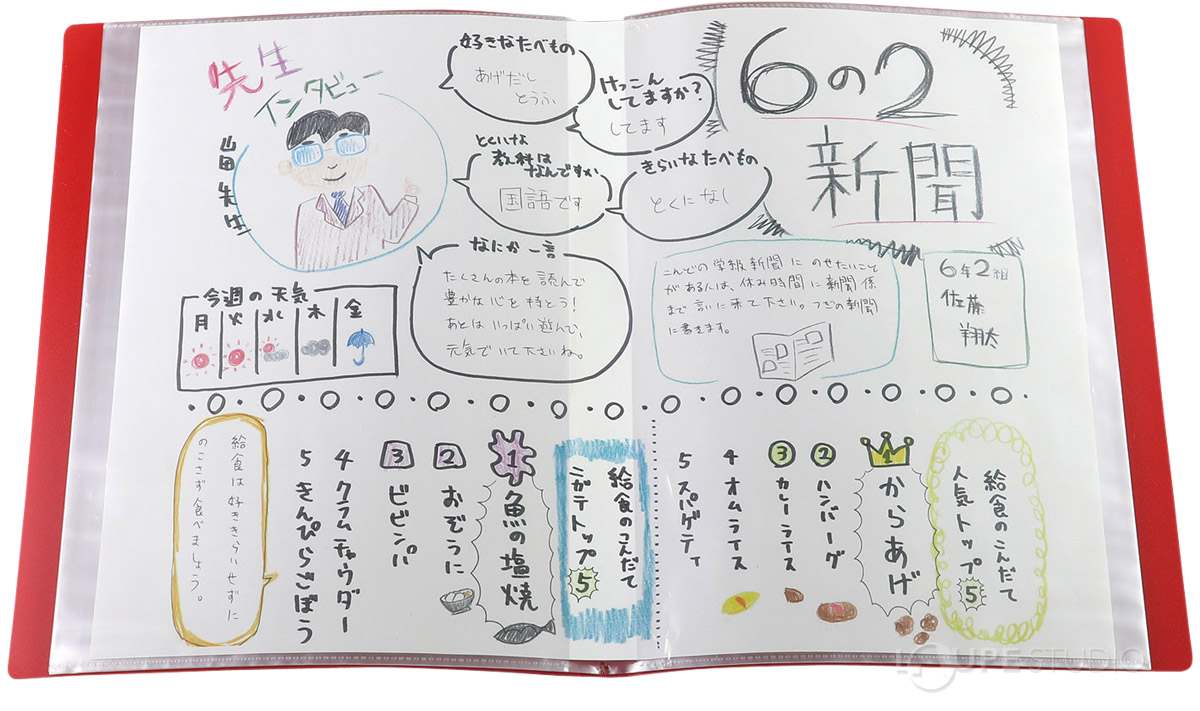 6の2
新聞
先生
インタビュー
山田先生
好きなたべもの
あげだし
とうふ
けっこん
してますか?
してます
とくいな
教科は
なんですか
国語です
きらいなたべもの
とくになし
なにか一言
たくさんの本を読んで
豊かな心を持とう!
あとはいっぱい遊んで、
元気でいて下さいね。
こんどの学級新聞にのせたいこと
がある人は、休み時間に新聞係
まで言いに来て下さい。つぎの新聞
に書きます。
6年2組
佐藤
翔太
今週の天気
月 火 水 木 金
給食のこんだて
人気トップ5
1 からあげ
2 ハンバーグ
3 カレーライス
4 オムライス
5 スパゲティ
給食のこんだて
ニガテトップ5
1 魚の塩焼
2 おぞうに
3 ビビンパ
4 クラムチャウダー
5 きんぴらごぼう
給食は好ききらいせずに
のこさず食べましょう。
LOUPE STUDIO